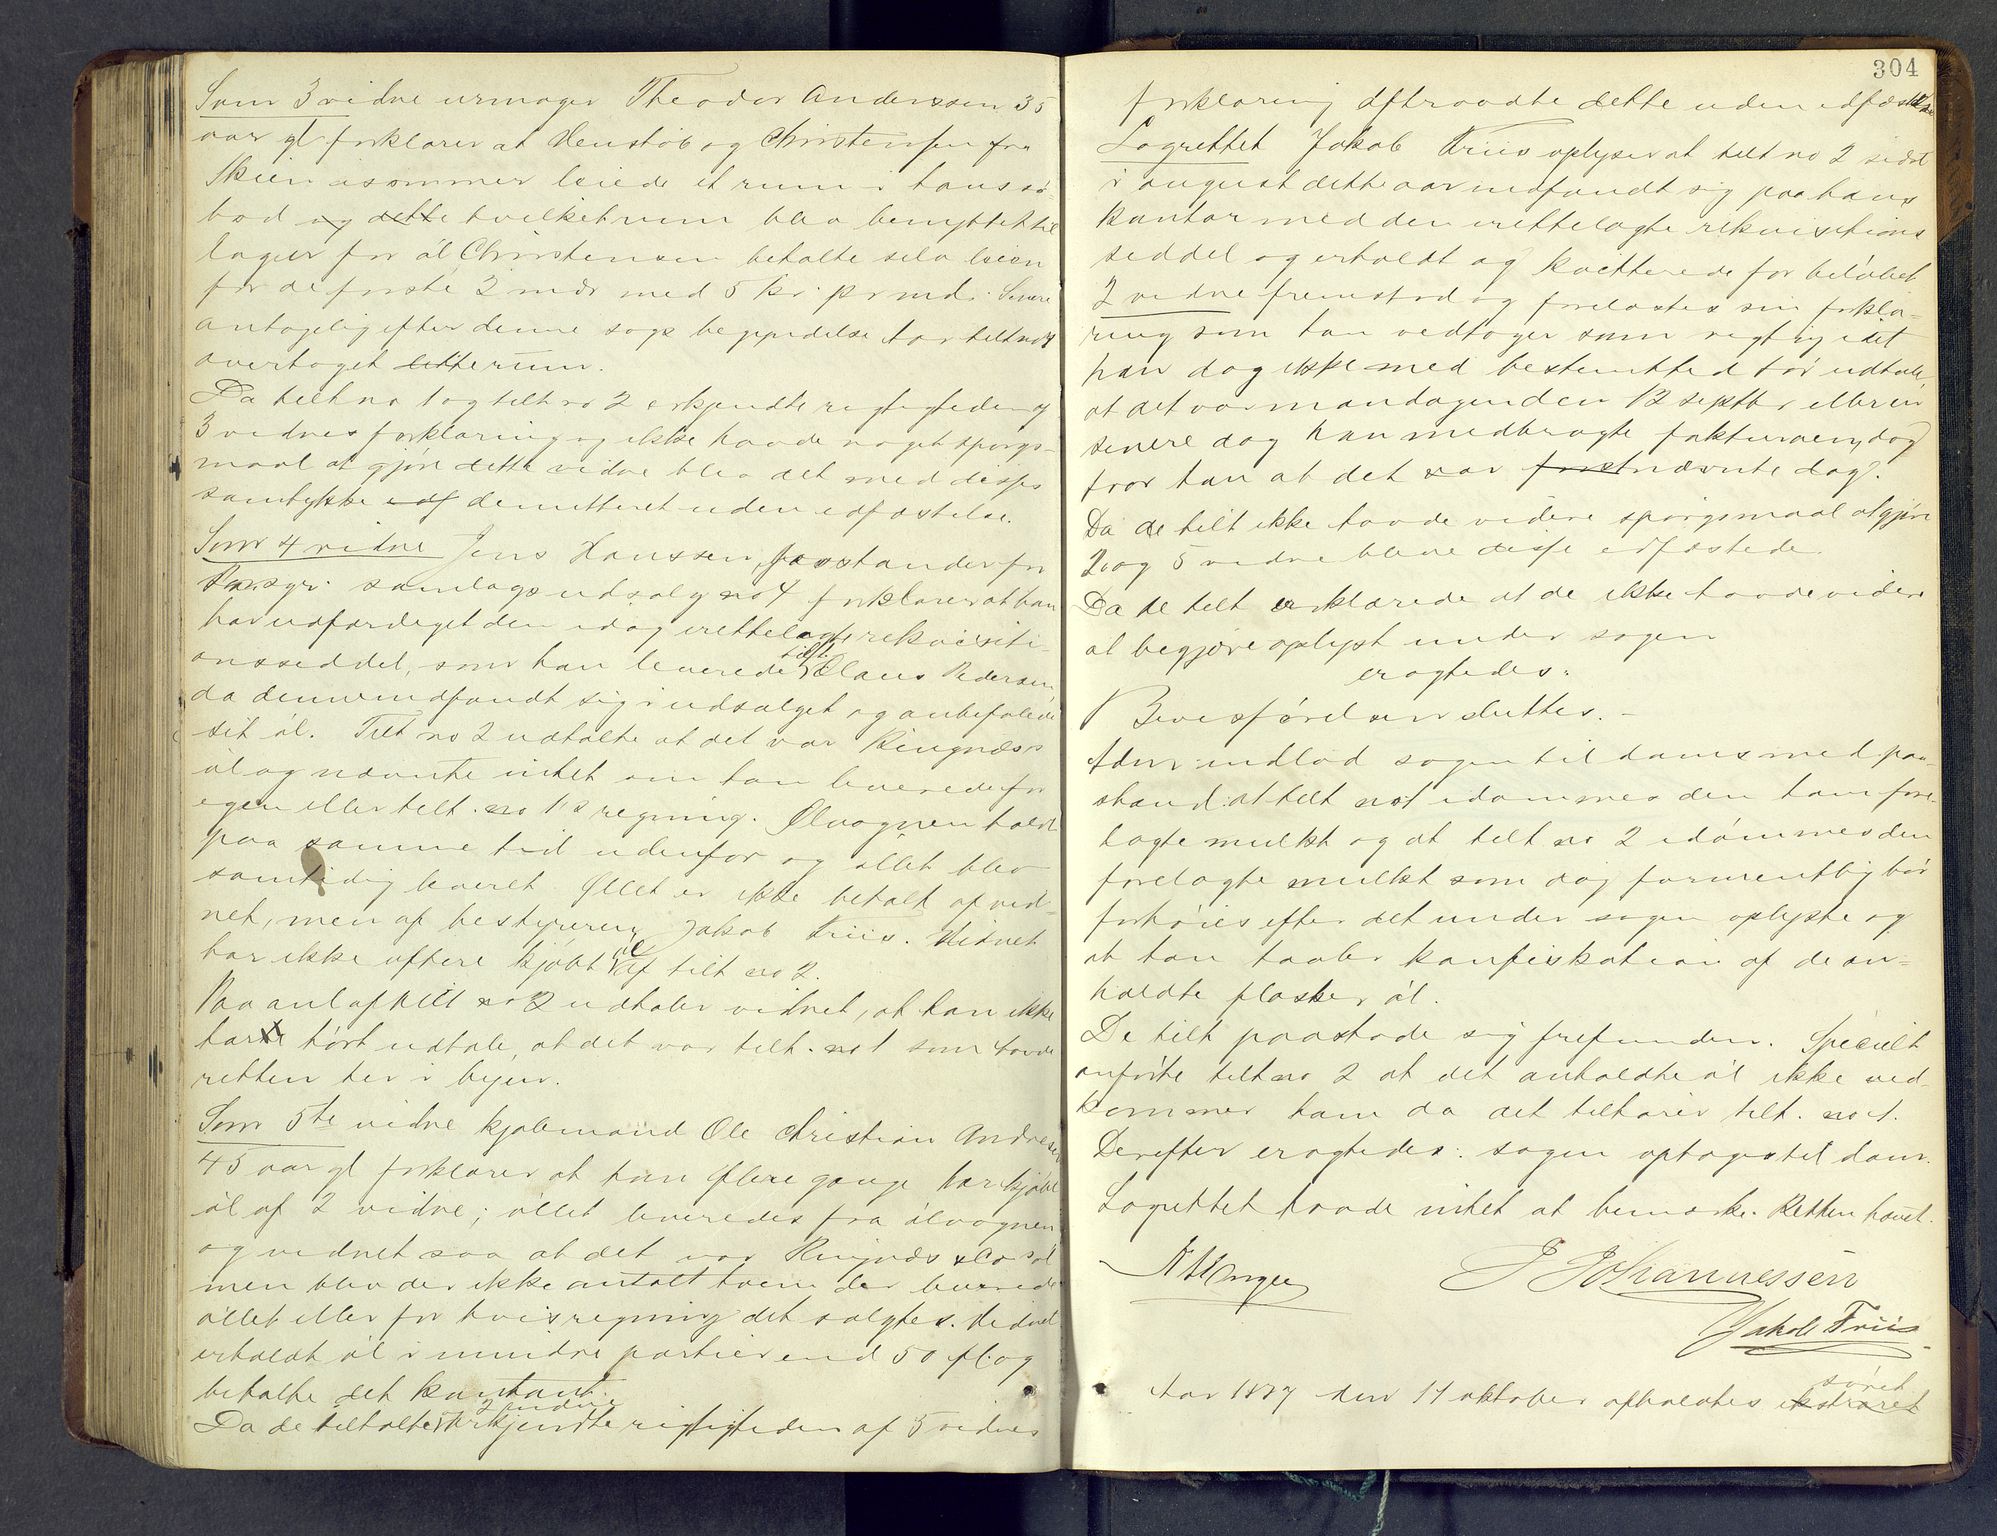 Som 3 vidne urmager Theodor Anderssen 35
aar gl forklarer at Venstøb og Christensen fra
Skien isommer leiede et rum i hans sø-
bod og dette hvilket rum blev benyttet til
lager for øl Christensen betalte selv leien
for de første 2 mdr med 5 kr. pr md. Senere
antagelig efter denne sags begyndelse har tilt no 1
overtaget dette rum.
Da tilt no 1 og tilt no 2 erkjendte rigtigheden af
3 vidnes forklaring og ikke havde noget spørgs-
maal at gjøre dette vidne blev det med disses
samtykke edf demitteret uden edfæstelse.
Som 4 vidne Jens Hanssen, forstander for
Porsgr. samlags udsalg no 4 forklarer at han
har udfærdiget den idag irettelagte rekvisiti-
onsseddel, som han leverede tilt. Olaus Pedersen
da denne indfandt sig i udsalget og anbefalede
sit øl. Tilt no 2 udtalte at det var Ringnæs's
øl og nævnte intet om han leverede for
egen eller tilt. no 1's regning. Ølvognen holdt
paa samme tid udenfor og øllet blev
samtidig leveret. Øllet er ikke betalt af vid-
net, men af bestyreren Jakob Friis. Vidnet
har ikke oftere kjøbt øl af tilt no 2.
Paa anl af tilt no 2 udtaler vidnet, at han ikke
har hørt udtale, at det var tilt. no 1 som havde
retten her i byen.
Som 5te vidne kjøbmand Ole Christian Andresen
45 aar gl forklarer at han flere gange har kjøbt
øl af 2 vidne; øllet leveredes fra ølvognen
og vidnet saa at det var Ringnæs & Co's øl
men blev der ikke antalt hvem der leverede
øllet eller for hvis regning det solgtes. Vidnet
erholdt øl i mindre partier end 50 fl. og
betalte det kontant.
2 vidne
Da de tiltalte erkjendte rigtigheden af 5 vidnes
304
forklaring aftraadte dette uden edfæstelse
Lagrettet Jakob Friis oplyser at tilt no 2 sidst
i august dette aar indfandt sig paa hans
kontor med den irettelagte rekvisitions
seddel og erholdt og kvitterede for beløbet
2 vidne fremstod og forelæstes sin forkla-
ring som han vedtager som rigtig idet
han dog ikke med bestemthed tør udtale
at det var mandagen den 12 septbr eller en
senere dag han medbragte fakturaen, dog
tror han at det var førstnævnte dag.
Da de tilt ikke havde videre spørgsmaal at gjøre
2 og 5 vidne bleve disse edfæstede.
Da de tilt erklærede at de ikke havde videre
at begjære oplyst under sagen
eragtedes:
Bevisførelsen sluttes. –
Aktor indlod sagen til doms med paa-
stand: at tilt no 1 idømmes den ham fore-
lagte mulkt og at tilt no 2 idømmes den
forelagte mulkt som dog formentlig bør
forhøies efter det under sagen oplyste og
at han taaler konfiskation af de an-
holdte flasker øl.
De tilt paastode sig frifunden. Specielt
anførte tilt no 2 at det anholdte øl ikke ved-
kommer ham da det tilhører tilt. no 1.
Derefter eragtedes: sagen optages til dom.
Lagrettet havde intet at bemærke. Retten hævet.
J Johannessen
Jakob Friis
Aar 1887 den 14 oktober afholdtes ekstraret
søret